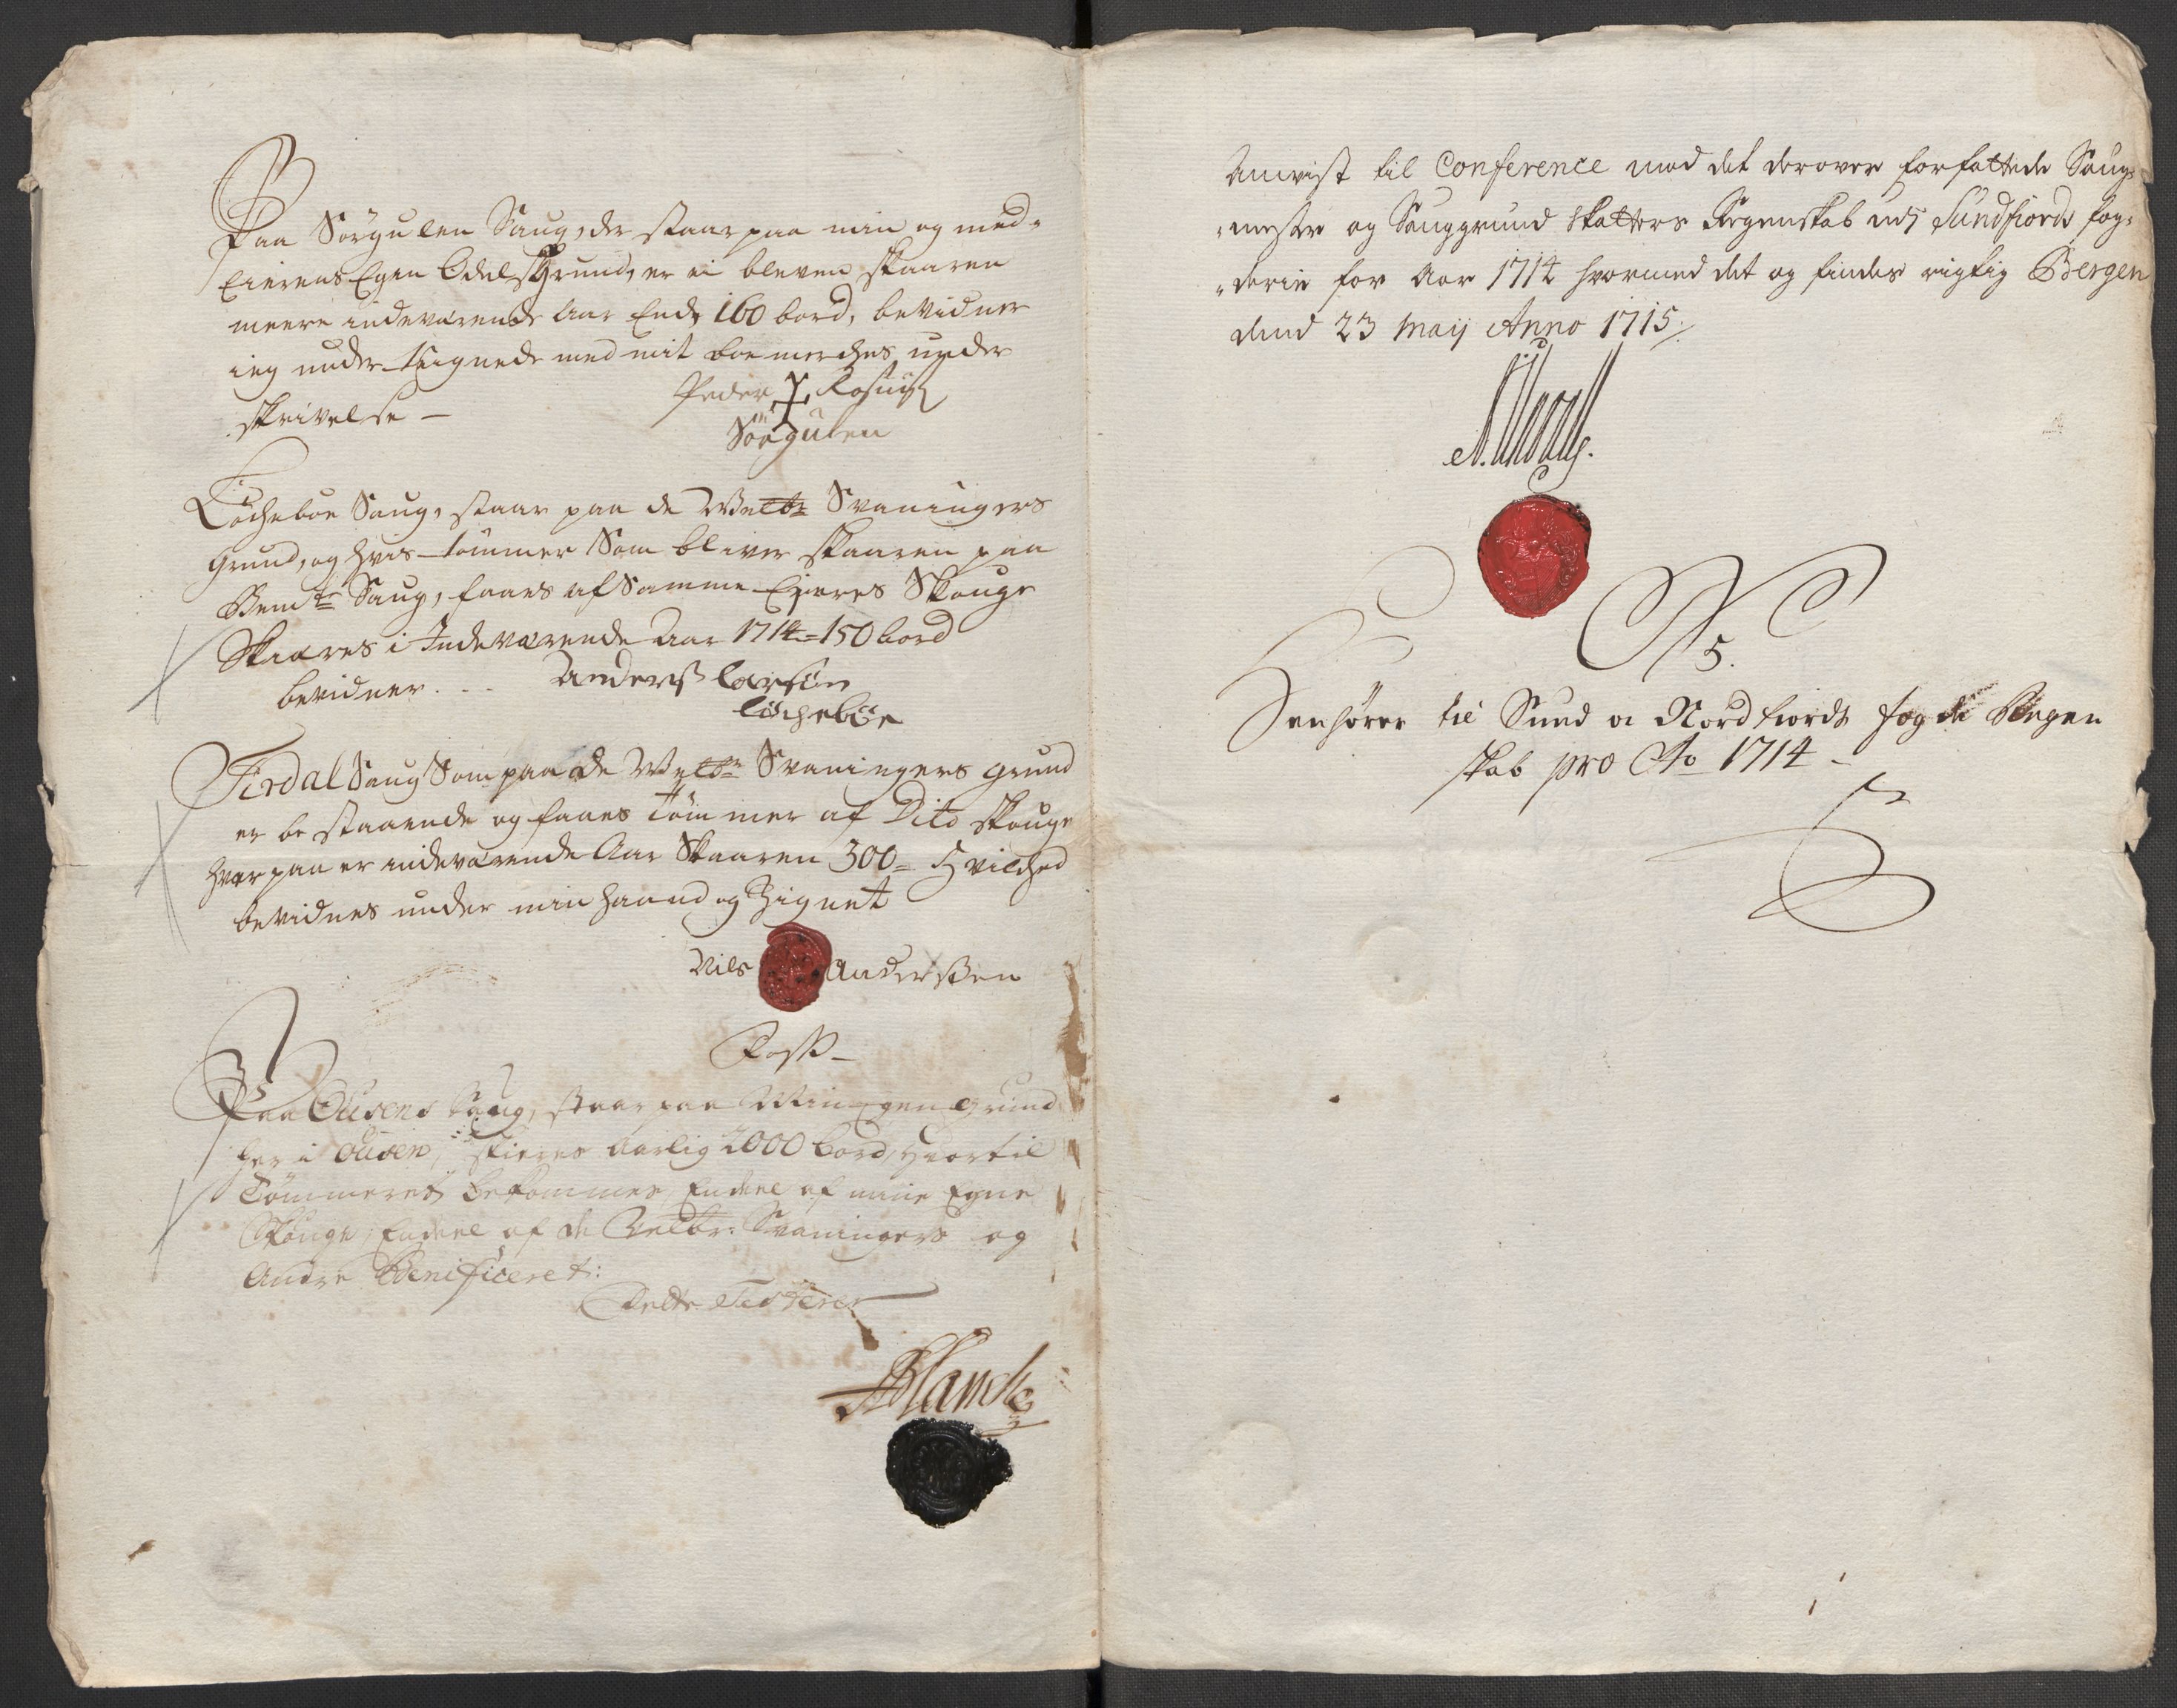 Paa Sörgulen Saug, der staar paa min og med-
Eierens Egen Odels Grund, er ei bleven skaaren
meere indeværende Aar End, 160 bord, bevidner
ieg under tegnede med mit boemerches under
skrivelse – Peder Rasmus
Sörgulen
Löcheböe Saug, staar paa de Welbr Svaningers
Grund, og hvis tömmer Som bliver skaaren paa
Bemte Saug, faaes af Samme Eijeres Skouge
Skiæres i Indeværende Aar 1714 = 150 bord
bevidner . . . Anderß larsön
löcheböe
Firdal Saug Som paa de Welbr Svaningers grund
er be staaende og faaes Tömmer af Dito skouge
hvor paa er indeværende Aar Skaaren 300 = Hvilched
bevidnes under min haand og Zignet
Nils Anderßen
Paa Ousens Saug, staar paa Min Egen grund
her i Ousen, skieres Aarlig 2000 bord, hvortil
Tömmeret bekommes, Endeel af mine Egne
Skouge, Endeel af de Velbr: Svaningers og
Andre Benificeret:
Dette Testerer
Blanck
Anvist til Conference med det derover forfattede Saug-
mester og Sauggrund Skatters Regenskab udj Sundfiords fog-
derie for Aar 1714 hvormed det og findes rigtig Bergen
dend 23 Maij Anno 1715.
N 5.
Henhörer til Sund oc Nordfiords fogderi Regen
skab pro Ao 1714 –